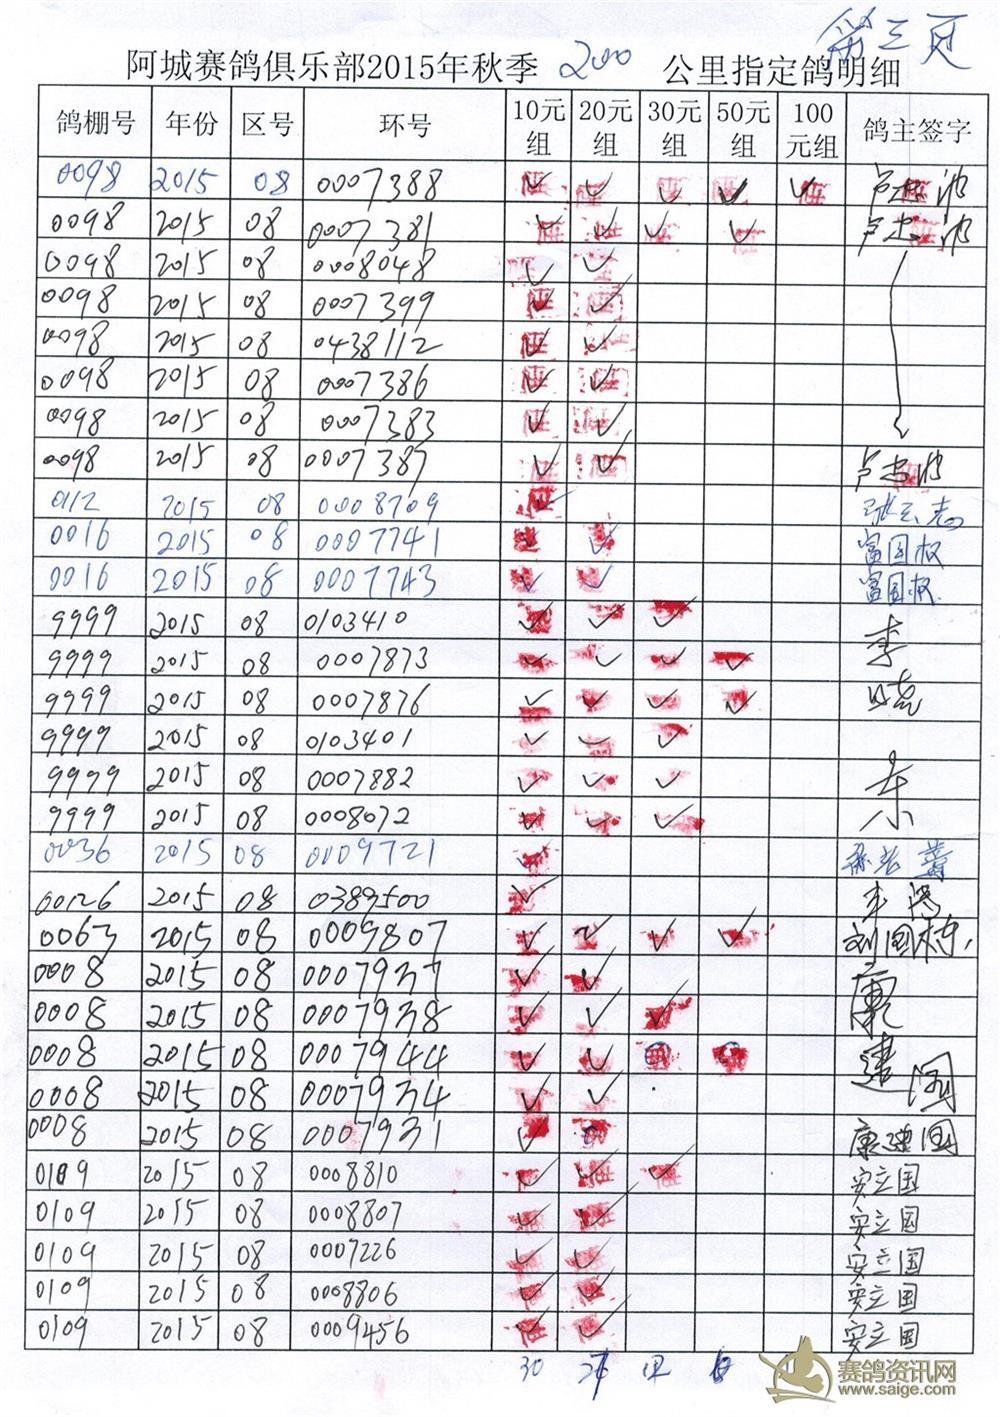 第三页
阿城赛鸽俱乐部2015年秋季 200 公里指定鸽明细
鸽棚号 年份 区号 环号 10元组 20元组 30元组 50元组 100元组 鸽主签字
0098 2015 08 0007388 ✓ ✓ ✓ ✓ ✓
0098 2015 08 0007381 ✓ ✓ ✓ ✓
0098 2015 08 0008048 ✓ ✓
0098 2015 08 0007399 ✓ ✓
0098 2015 08 0438112 ✓ ✓
0098 2015 08 0007386 ✓ ✓
0098 2015 08 0007383 ✓ ✓
0098 2015 08 0007387 ✓ ✓
0112 2015 08 0008709 ✓ 张云志
0016 2015 08 0007741 ✓ ✓ 富国权
0016 2015 08 0007743 ✓ ✓ 富国权
9999 2015 08 0103410 ✓ ✓ ✓ 李
9999 2015 08 0007873 ✓ ✓ ✓ ✓
9999 2015 08 0007876 ✓ ✓ ✓ ✓ 晓
9999 2015 08 0103401 ✓ ✓ ✓
9999 2015 08 0007882 ✓ ✓ ✓
9999 2015 08 0008072 ✓ ✓ ✓
0036 2015 08 0009721 ✓
00126 2015 08 0389500 ✓
0063 2015 08 0009807 ✓ ✓ ✓ ✓ 刘国栋
0008 2015 08 0007937 ✓ ✓ 康
0008 2015 08 0007938 ✓ ✓ ✓
0008 2015 08 0007944 ✓ ✓ 建国
0008 2015 08 0007934 ✓ ✓
0008 2015 08 0007931 ✓ 康建国
0109 2015 08 0008810 ✓ ✓ ✓ 安立国
0109 2015 08 0008807 ✓ ✓ 安立国
0109 2015 08 0007226 ✓ ✓ 安立国
0109 2015 08 0008806 ✓ ✓ 安立国
0109 2015 08 0009456 ✓ ✓ 安立国
30
赛鸽资讯网
www.saige.com